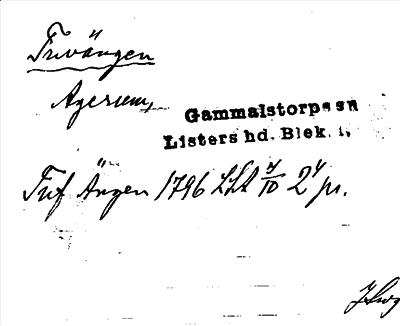 Tuvängen
Agerum,
Gammalstorps sn
Listers hd. Blek. l.
Tuf Ängen 1796 LSA 7/10 24 pr.